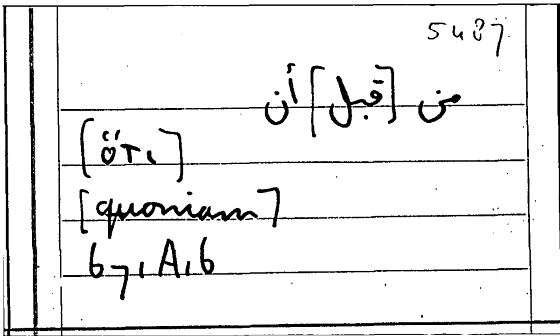 5487
من [قبل] أن
[ὅτι]
[quoniam]
67, A, 6